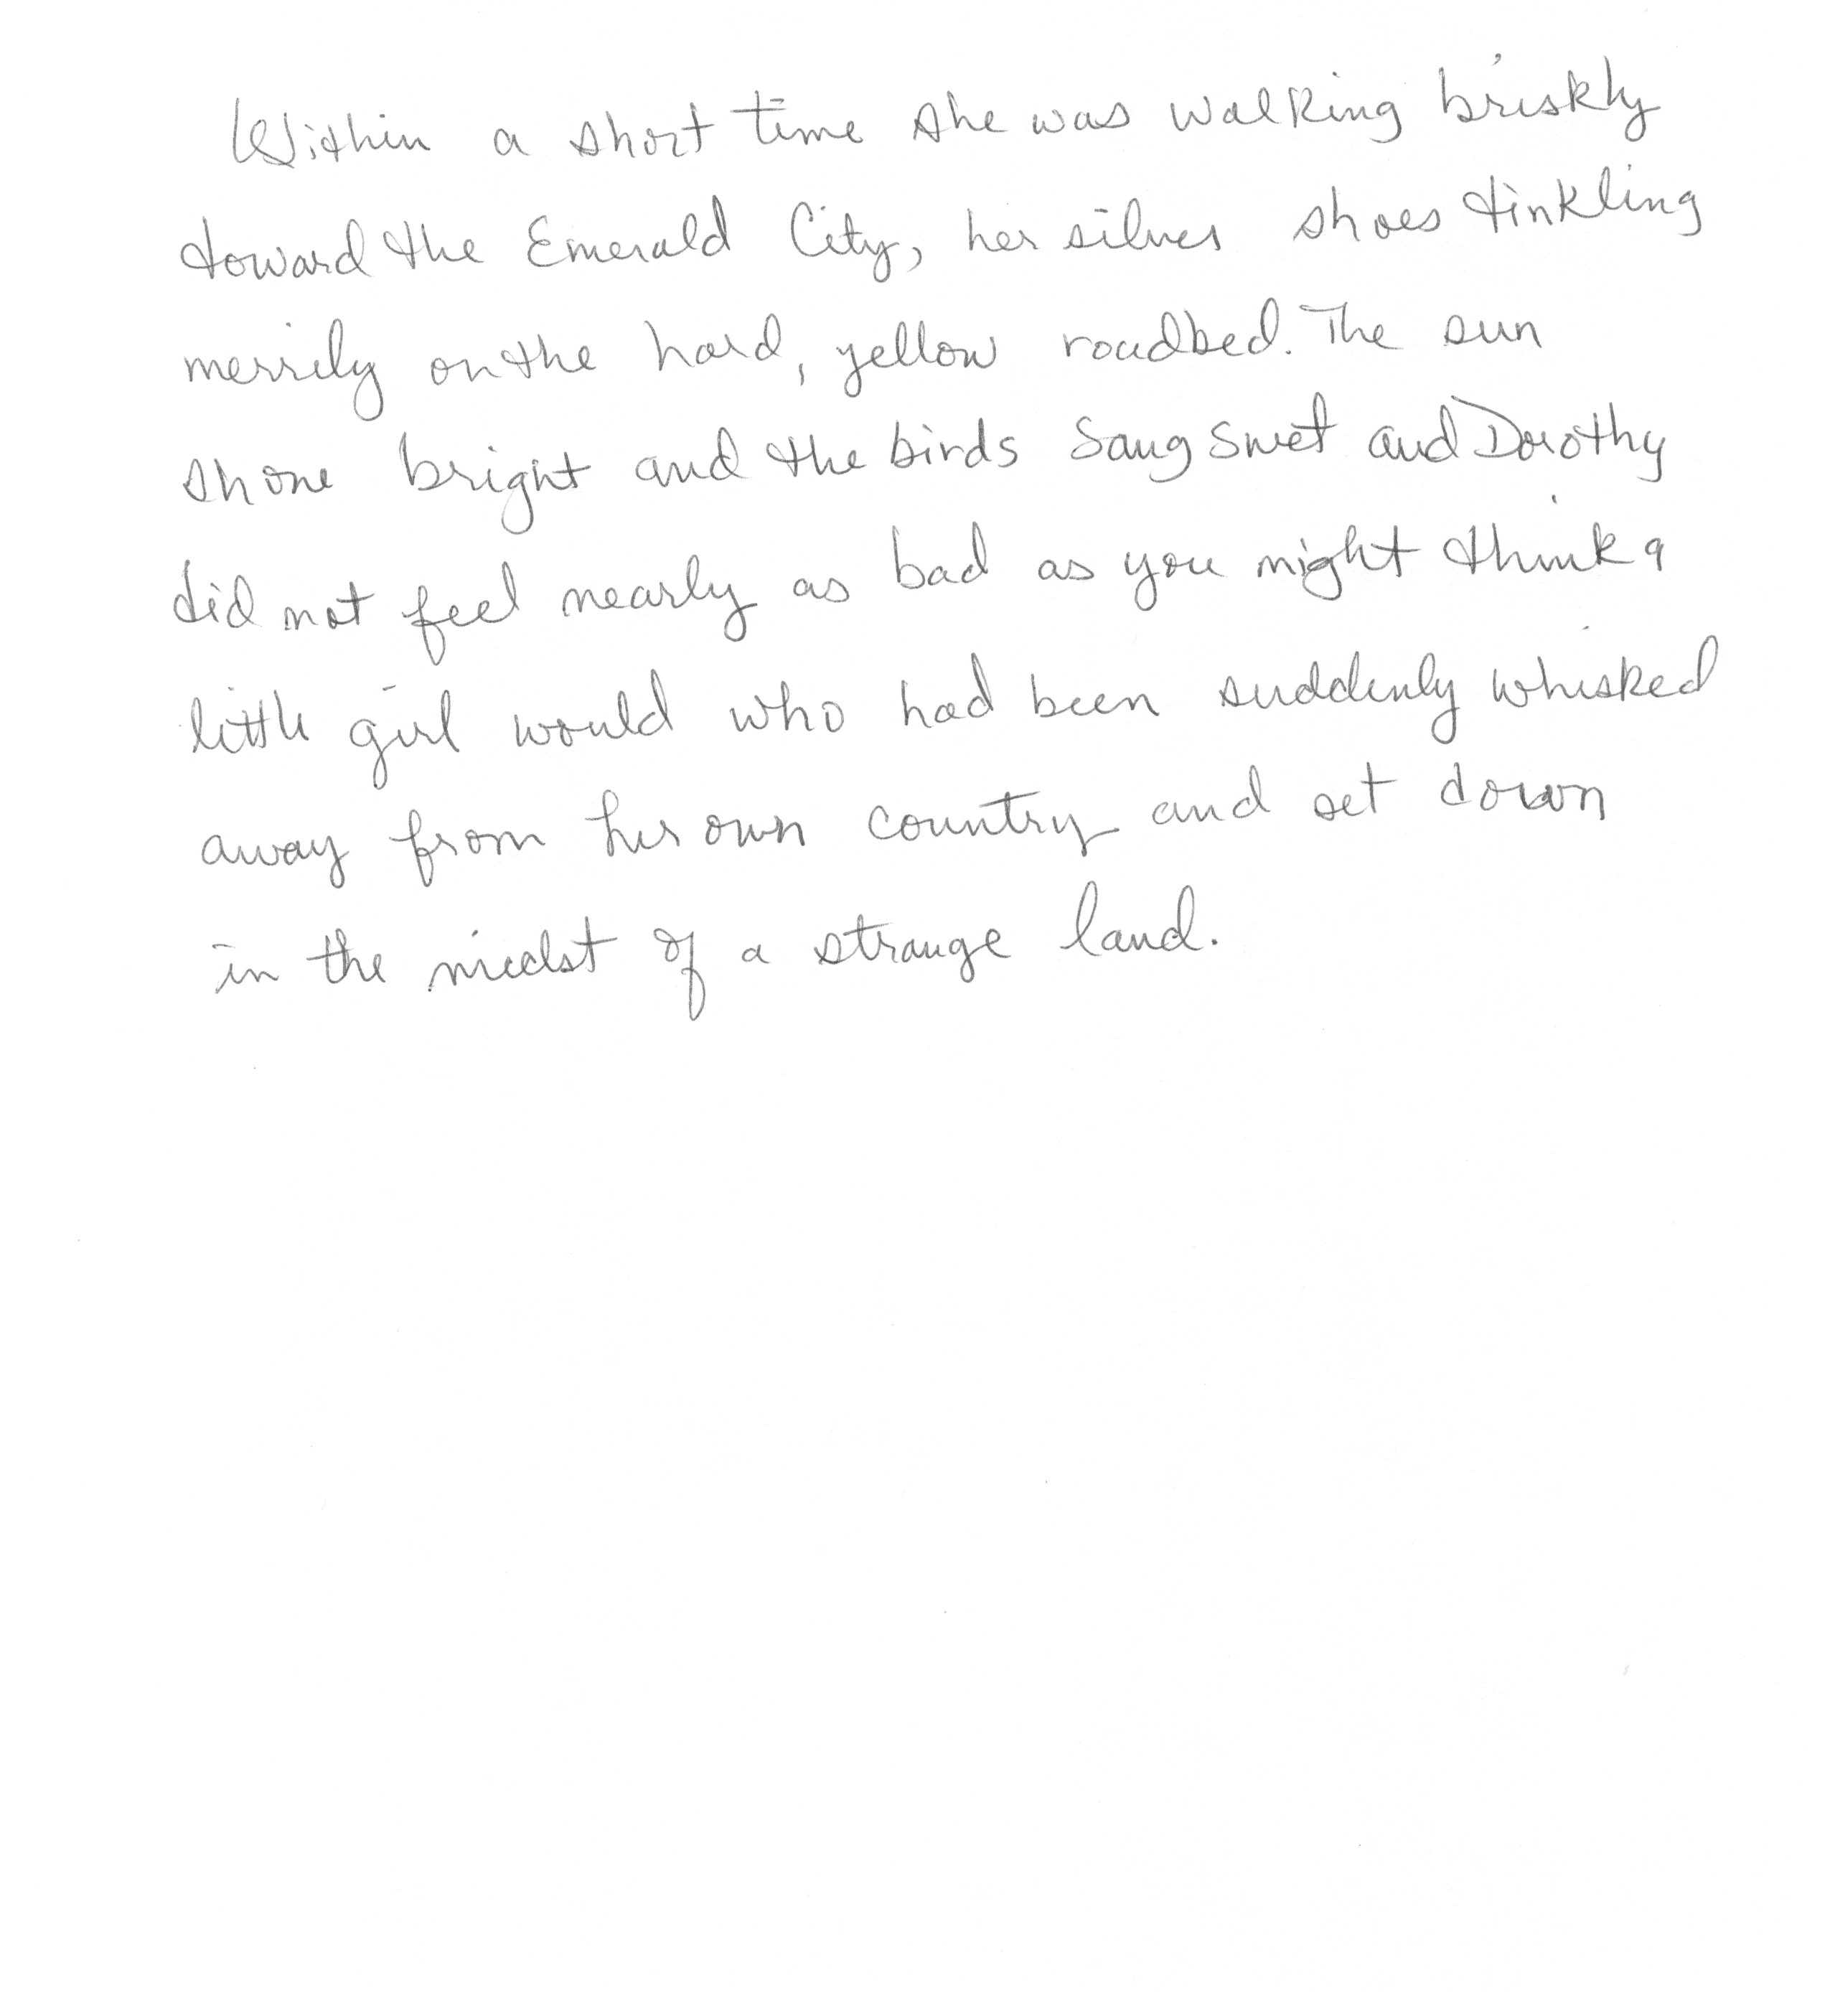 Within a short time she was walking briskly
toward the Emerald City, her silver shoes tinkling
merrily on the hard, yellow roadbed. The sun
shone bright and the birds sang swet and Dorothy
did not feel nearly as bad as you might think a
little girl would who had been suddenly whisked
away from her own country and set down
in the midst of a strange land.